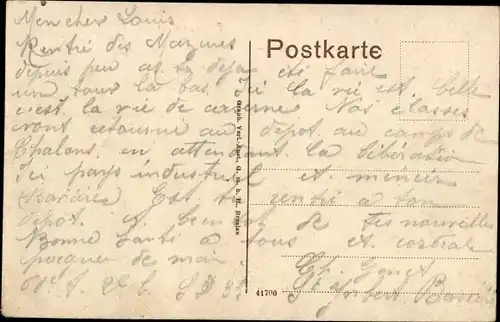 Mon cher Louis
Rentré des Mazures
Postkarte
depuis peu as tu déja été faire
un tour la bas. Ici la vie est belle
c'est la vie de caserne Nos classes
vont retourné au depot au camp de
Chalons en attendant la libération
Ici pays industriel et minier
Est tu rentré a ton
depot. A de tes nouvelles
Bonne santé a tous et cordiale
poignée de main
Graph. Verl.-Anst. G. m. b. H., Breslau
41700